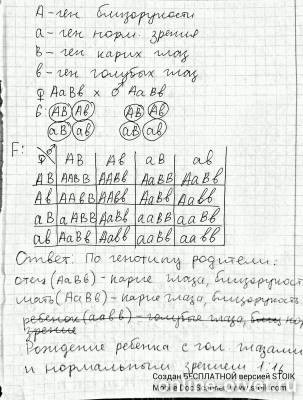 А-ген близорукости
а-ген норм. зрения
В-ген карих глаз
в-ген голубых глаз
♀ АаВв х ♂ АаВв
G: АВ Ав АВ Ав
аВ ав аВ ав
F:
♀ ♂ АВ Ав аВ ав
АВ ААВВ ААВв АаВВ АаВв
Ав ААВв ААвв АаВв Аавв
аВ аАВВ АаВв ааВВ ааВв
ав АаВв Аавв ааВв аавв
Ответ: По генотипу родители:
отец (АаВв) - карие глаза, близорукость
мать (АаВв) - карие глаза, близорукость
ребенок (аавв) - голубые глаза,
зрение
Рождение ребенка с гол глазами
и нормальным зрением 1:16
Создан БЕСПЛАТНОЙ версией STOIK